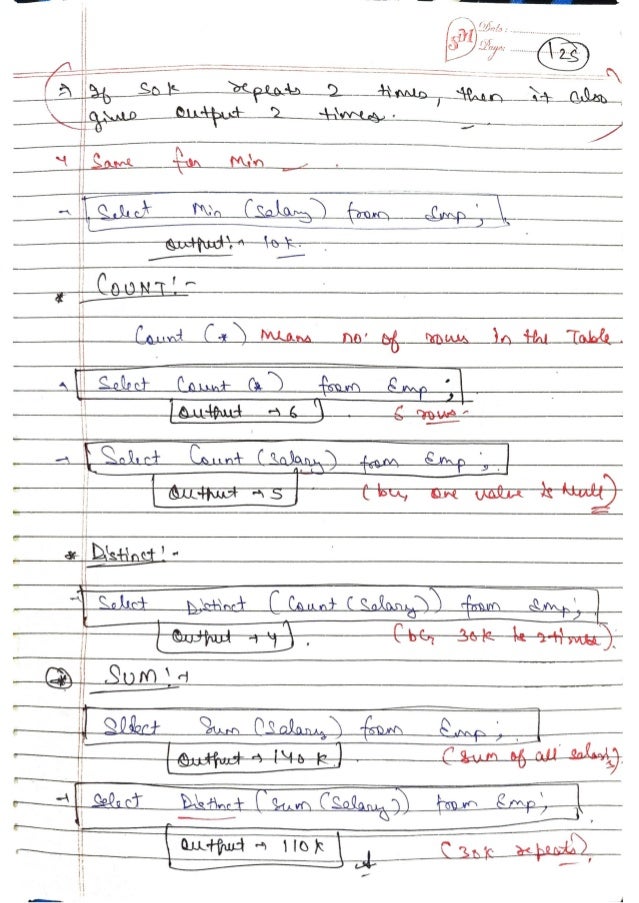 SM Date:
Page: 125
⇒ If 50k repeats 2 times, then it also
gives output 2 times.
Same for Min
→ Select Min (Salary) from Emp;
Output:- 10k.
* COUNT:-
Count (*) means no. of rows in the Table.
Select Count (*) from Emp;
Output → 6 6 rows
→ Select Count (Salary) from Emp;
Output → 5 (bcz, one value is Null)
* Distinct:-
→ Select Distinct (Count (Salary)) from Emp;
Output → 4. (bcz 30k is 2 times).
SUM:→
Select Sum (Salary) from Emp;
Output → 140k. (Sum of all salary)
→ Select Distinct (Sum (Salary)) from Emp;
Output → 110k (30k repeats).